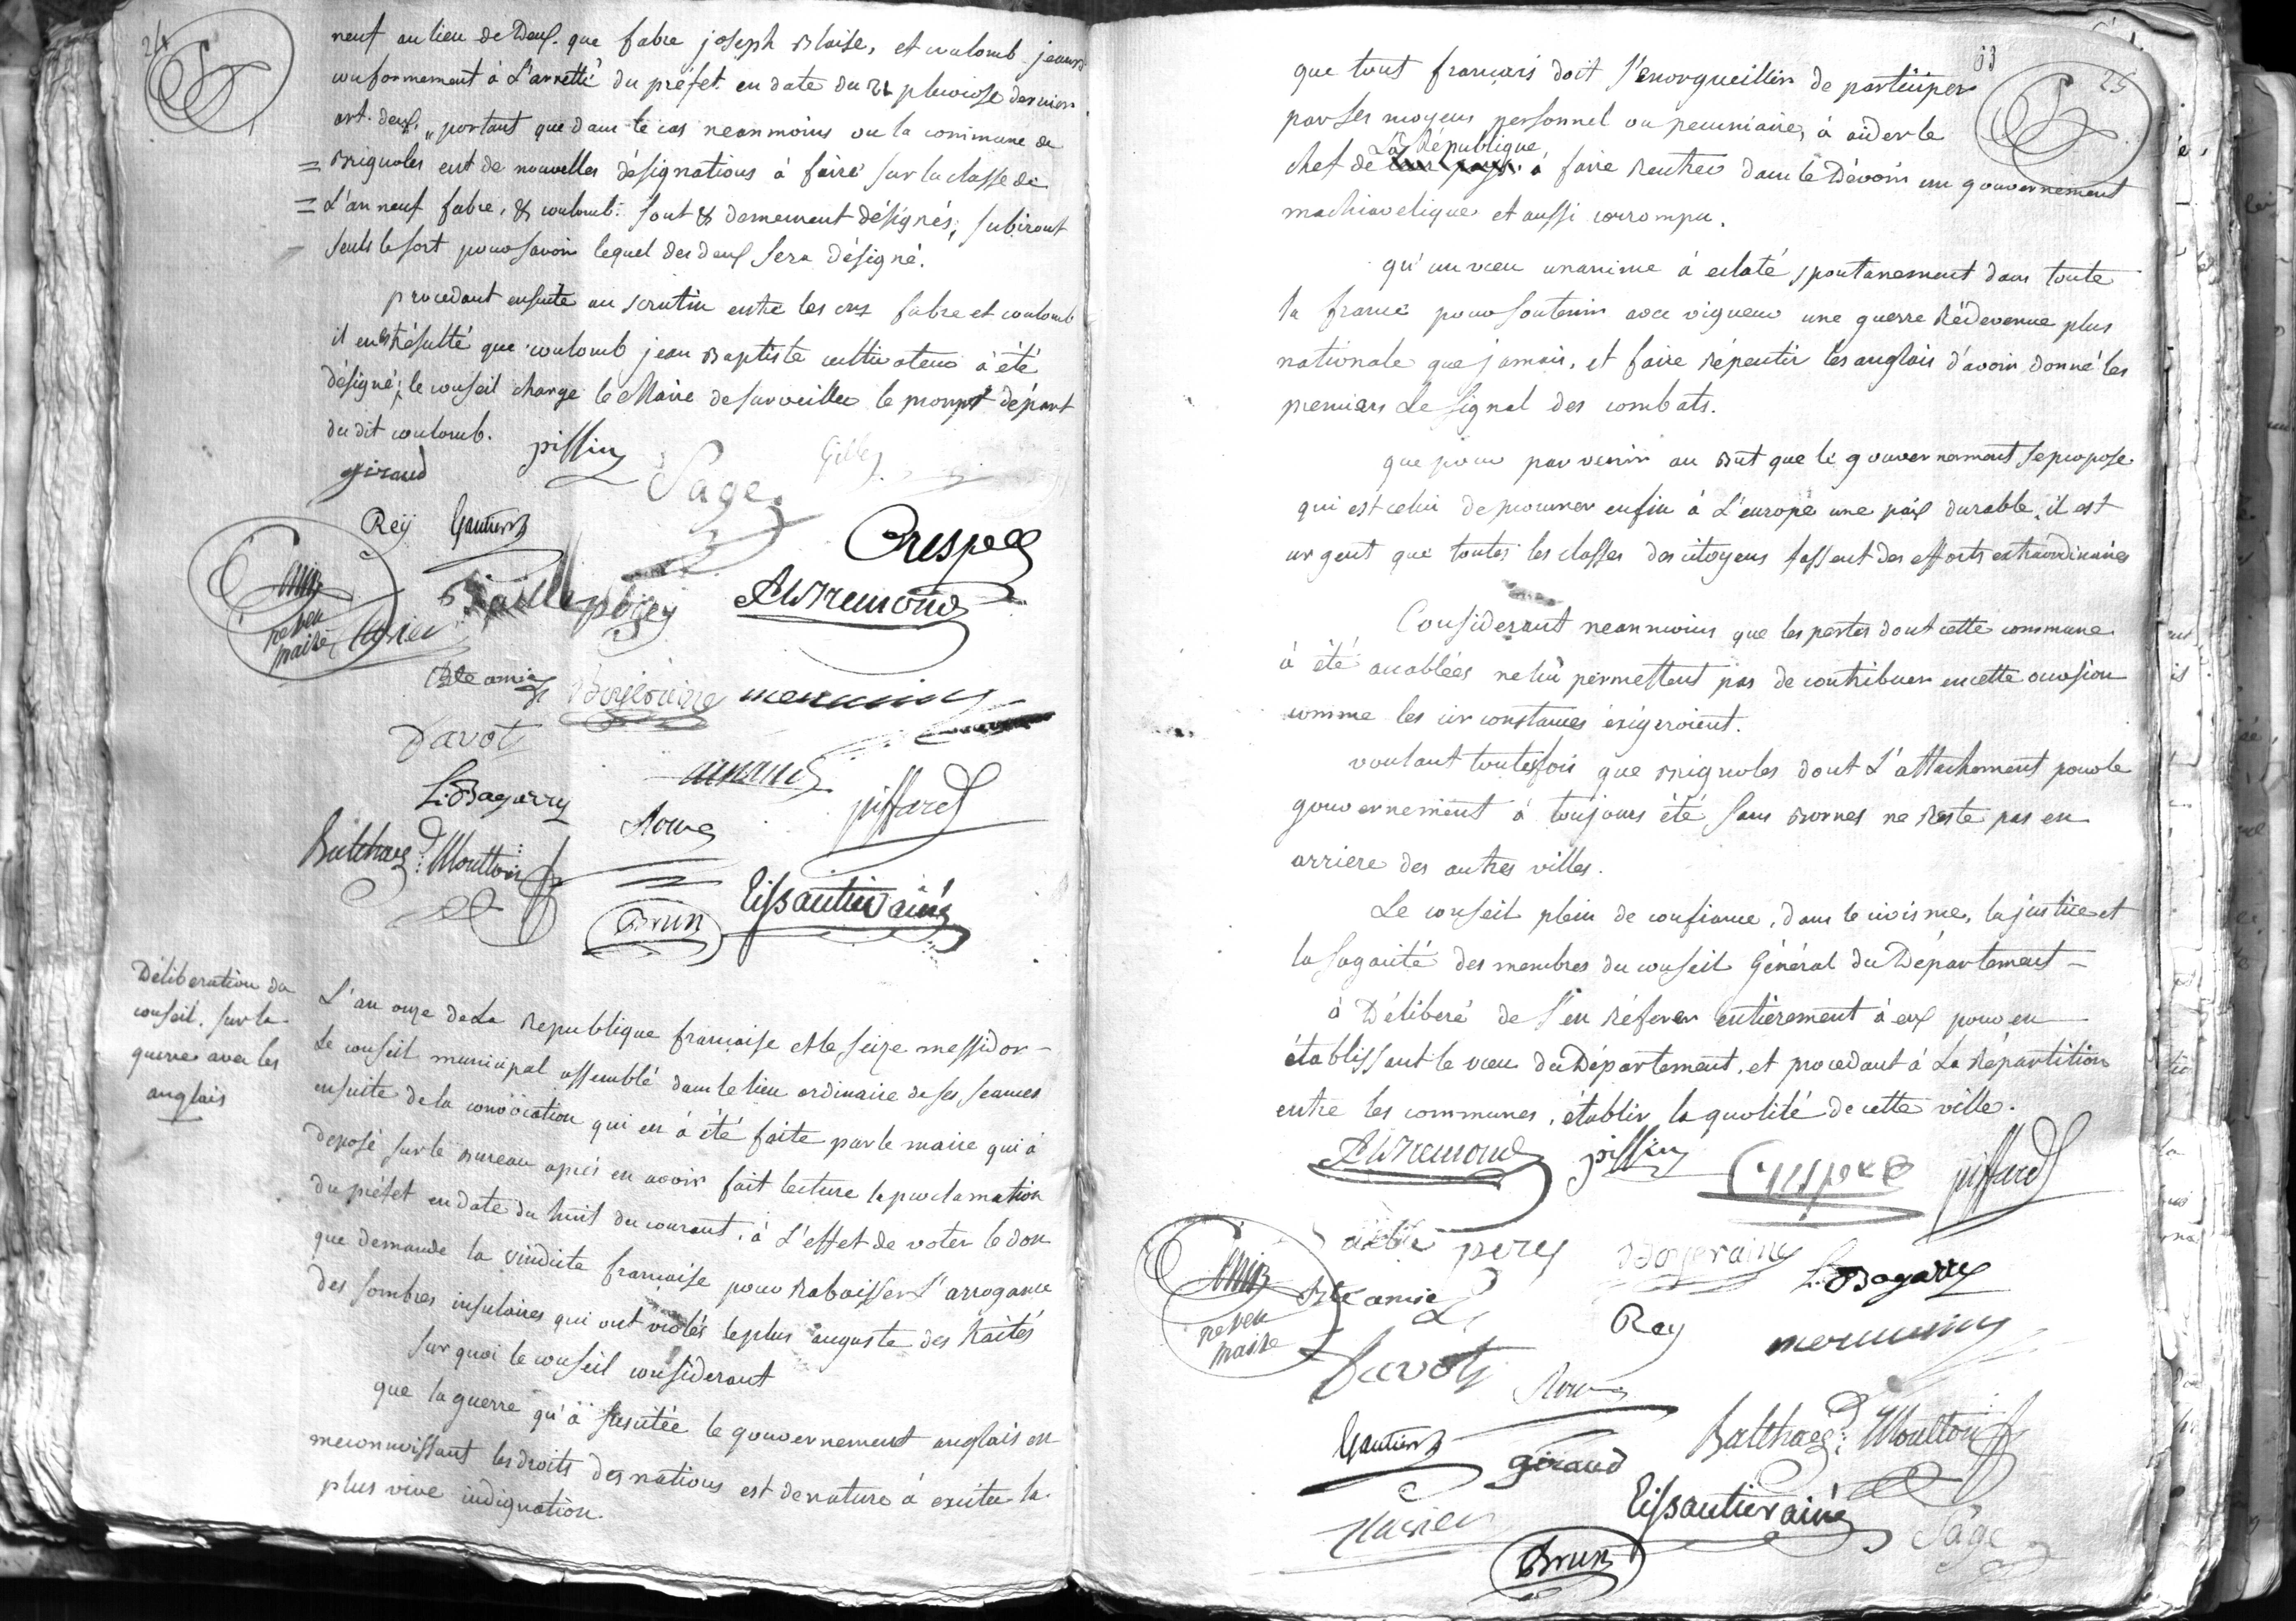 24
neuf au lieu de Deux. que fabre joseph Blaise, et coulomb jean B
conformement à L'arretté du préfet en date du 21 pluviose dernier
art. deux, " portant que dans le cas neanmoins ou la commune de
= Brignoles eut de nouvelles désignations à faire sur la classe de
= L'an neuf fabre, & coulomb. sont & demeurent désignés; subiront
seuls le sort pour savoir lequel des deux sera désigné.
procedant ensuite au scrutin entre les cns fabre et coulomb
il en est résulté que coulomb jean Baptiste cultivateur à été
désigné; le conseil charge le Maire de surveiller le prompt départ
du dit coulomb.
giraud pissin Sage Gilly
Reÿ Gautier Crespel
neveu maire pérey A W Bremond
Bte amic Boyeraine
Davot
L. Bagarry giffard
Balthazd. Moutton Roux
Brun Eissautier ainé
Déliberation du
conseil. sur la
guerre avec les
anglais
L'an onze de La Republique francaise et le seize messidor -
Le conseil municipal assemblé dans le lieu ordinaire de ses seances
ensuite de la convocation qui en à été faite par le maire qui à
deposé sur le Bureau aprés en avoir fait lecture la proclamation
du préfet en date du huit du courant, à L'effet de voter le don
que demande la vindicte francaise pour Rabaisser L'arrogance
des sombres insulaires qui ont violés le plus auguste des traités
sur quoi le conseil considerant
que la guerre qu'à suscitée le gouvernement anglais en
meconnoissant les droits des nations est de nature à exciter la
plus vive indignation.
33
25
que tout francais doit s'enorgueillir de participer
par ses moyens personnel ou pecuniaire, à aider le
chef de La République à faire rentrer dans le Dévoir un gouvernement
machiavelique et aussi corrompu.
qu'un vœu unanime à eclaté spontanement dans toute
la france pour soutenir avec vigueur une guerre Rédevenue plus
nationale que jamais, et faire répentir les anglais d'avoir donné les
premiers Le signal des combats.
que pour parvenir au But que le gouvernement se propose
qui est celui de procurer enfin à L'europe une paix durable, il est
urgent que toutes les classes des citoyens fassent des efforts extraordinaires
Considerant neanmoins que les pertes dont cette commune
à été accablées ne lui permettent pas de contribuer en cette occasion
comme les circonstances éxigeroient.
voulant toutesfois que Brignoles dont L'attachement pour le
gouvernement à toujours été sans Bornes ne Reste pas en
arriere des autres villes.
Le conseil plein de confiance, dans le civisme, la justice et
la sagacité des membres du conseil Général du Département -
à Déliberé de s'en réferer entiérement à eux pour en
établissant le vœu du Département, et procedant à La Répartition
entre les communes, établir la quotité de cette ville.
A W Bremond pissin Crespel giffard
pérey Boyeraine L. Bagarry
neveu maire Bte amic Rey
Davot Roux
Gautier giraud Balthazd. Moutton
Eissautier ainé Sage
Brun